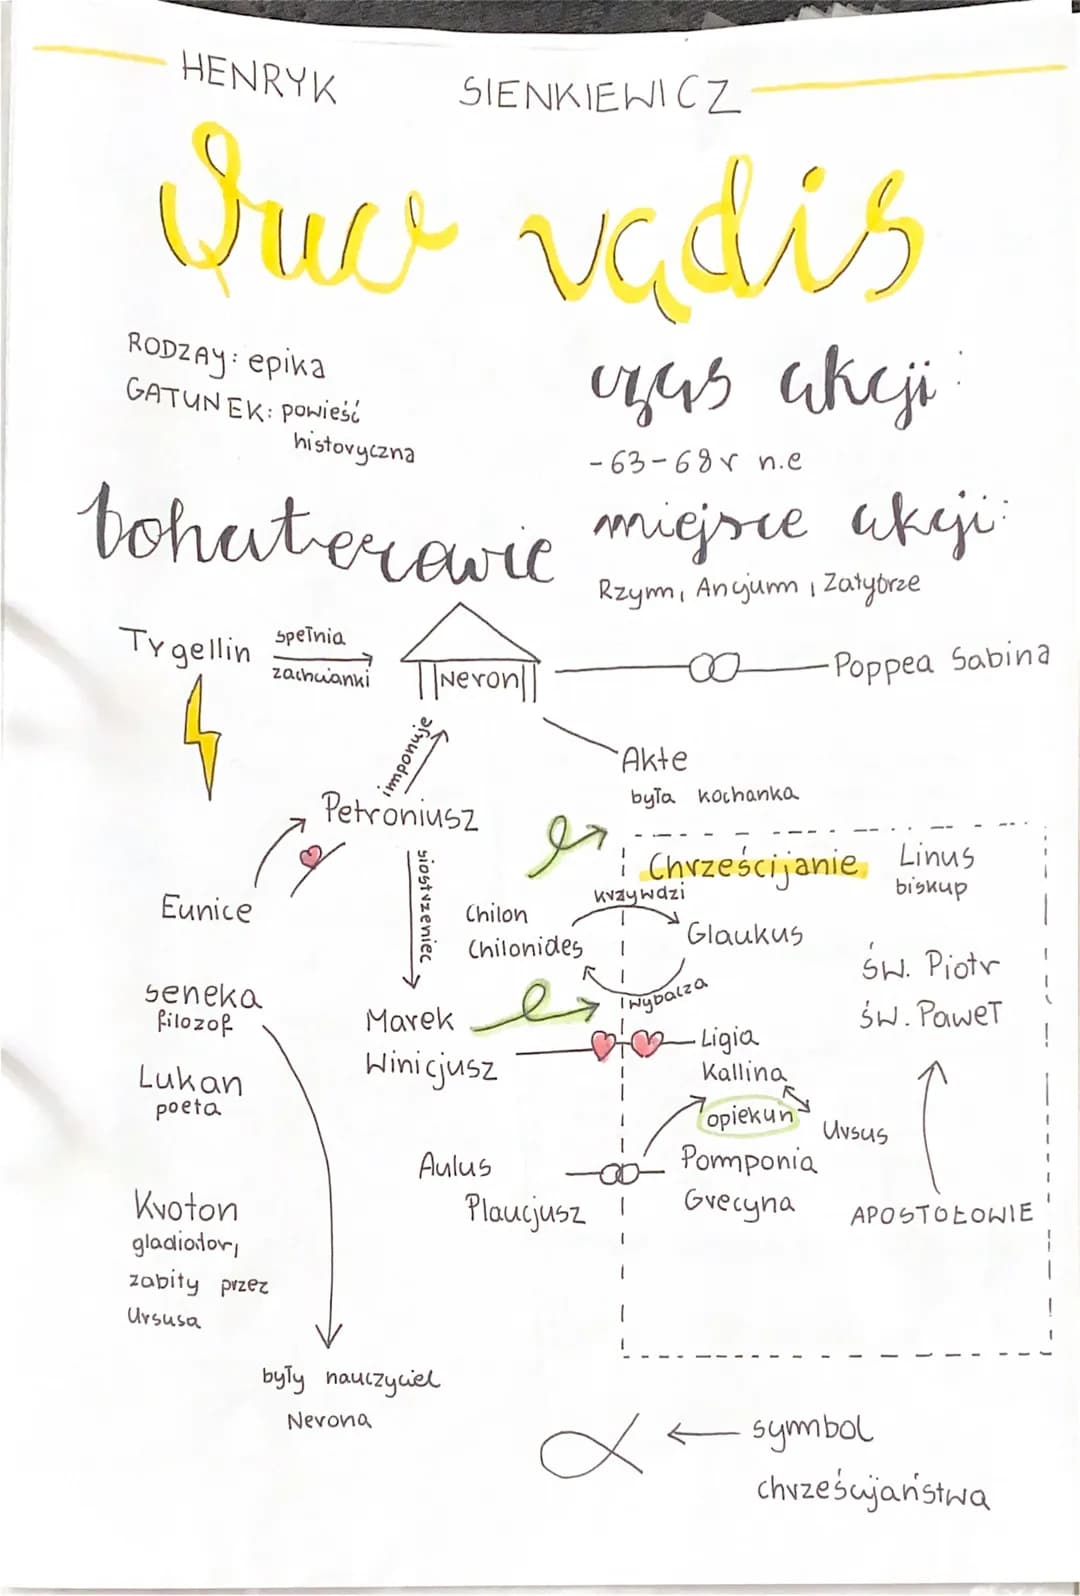 HENRYK SIENKIEWICZ
Quo vadis
RODZAY: epika
GATUNEK: powieść
historyczna
czas akcji:
-63-68 r n.e
bohaterowie
miejsce akcji:
Rzym, Ancjum, Zatybrze
Tygellin
spełnia
zachcianki
Neron
Poppea Sabina
imponuje
Akte
była kochanka
Petroniusz
siostrzeniec
Eunice
Chrześcijanie
Linus
biskup
krzywdzi
Chilon
Chilonides
Glaukus
wybacza
św. Piotr
św. Paweł
seneka
filozof
Marek
Winicjusz
Ligia
Kallina
Lukan
poeta
opiekun
Ursus
Aulus
Plaucjusz
Pomponia
Grecyna
APOSTOŁOWIE
Kroton
gladiator,
zabity przez
Ursusa
były nauczyciel
Nerona
symbol
chrześcijaństwa